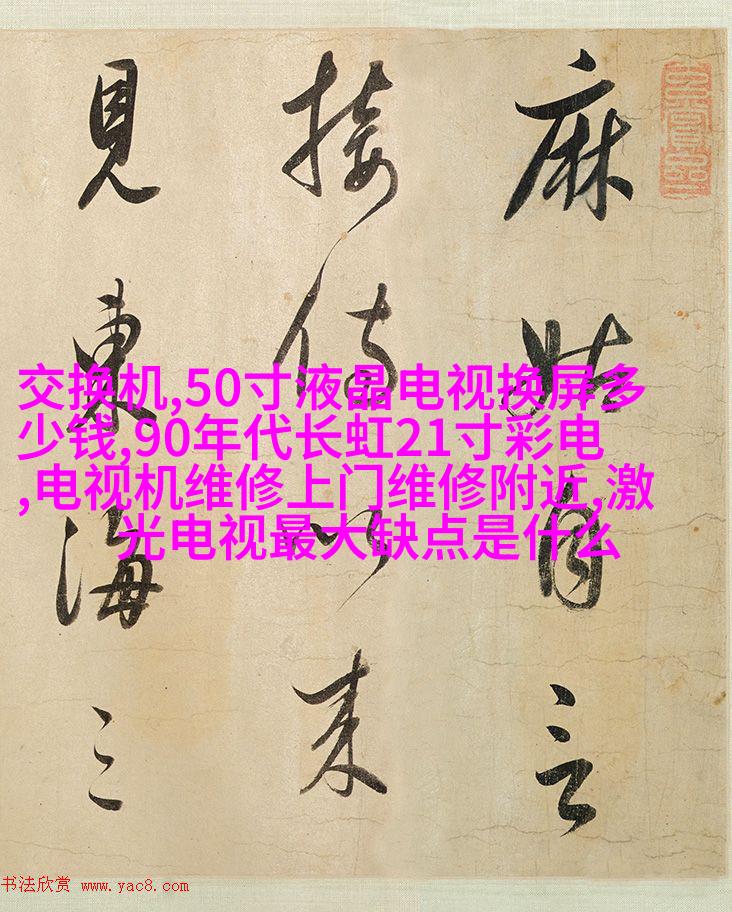 麻姑自言
接侍以来
見東海三
交换机,50寸液晶电视换屏多
少钱,90年代长虹21寸彩电
,电视机维修上门维修附近,激
光电视最大缺点是什么
书法欣赏 www.yac8.com